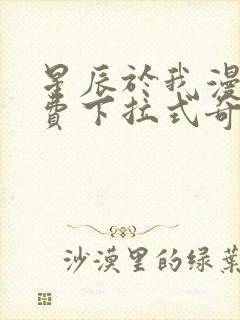 星辰於我漫
費下拉式奇
沙漠里的绿葉